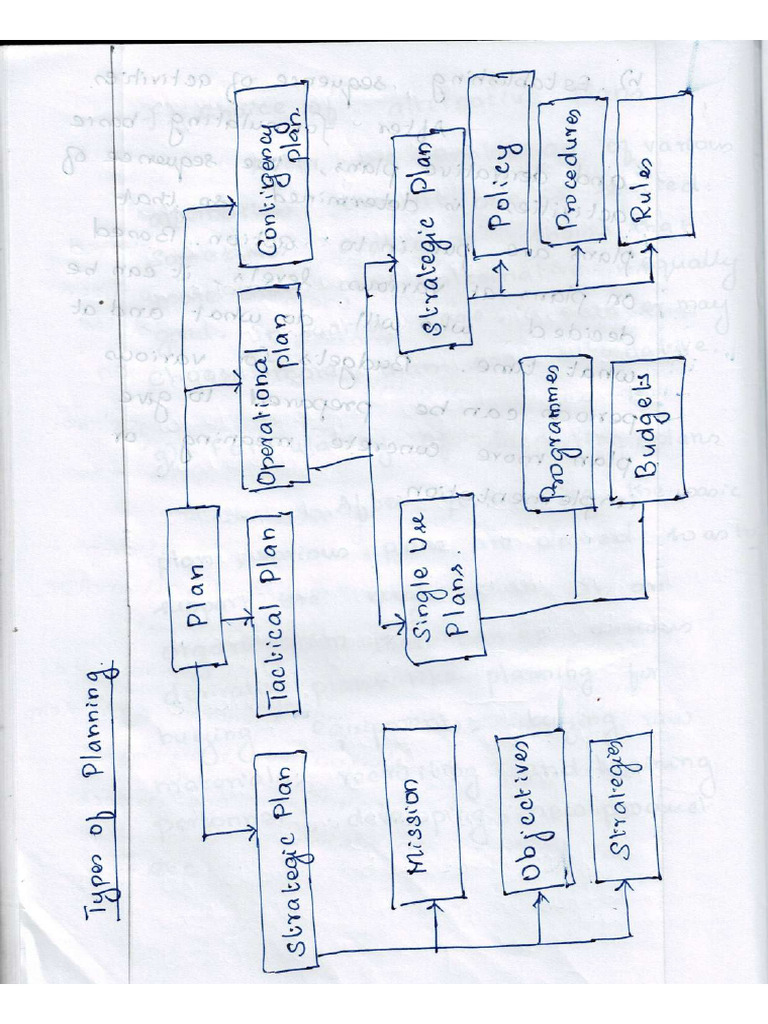 Types of Planning.
Plan
Strategic Plan
Tactical Plan
Operational
plan
Contigency
plan.
Mission
Objectives
Strategies
Single Use
Plans.
Strategic Plan
Programmes
Budgets
Policy
Procedures
Rules